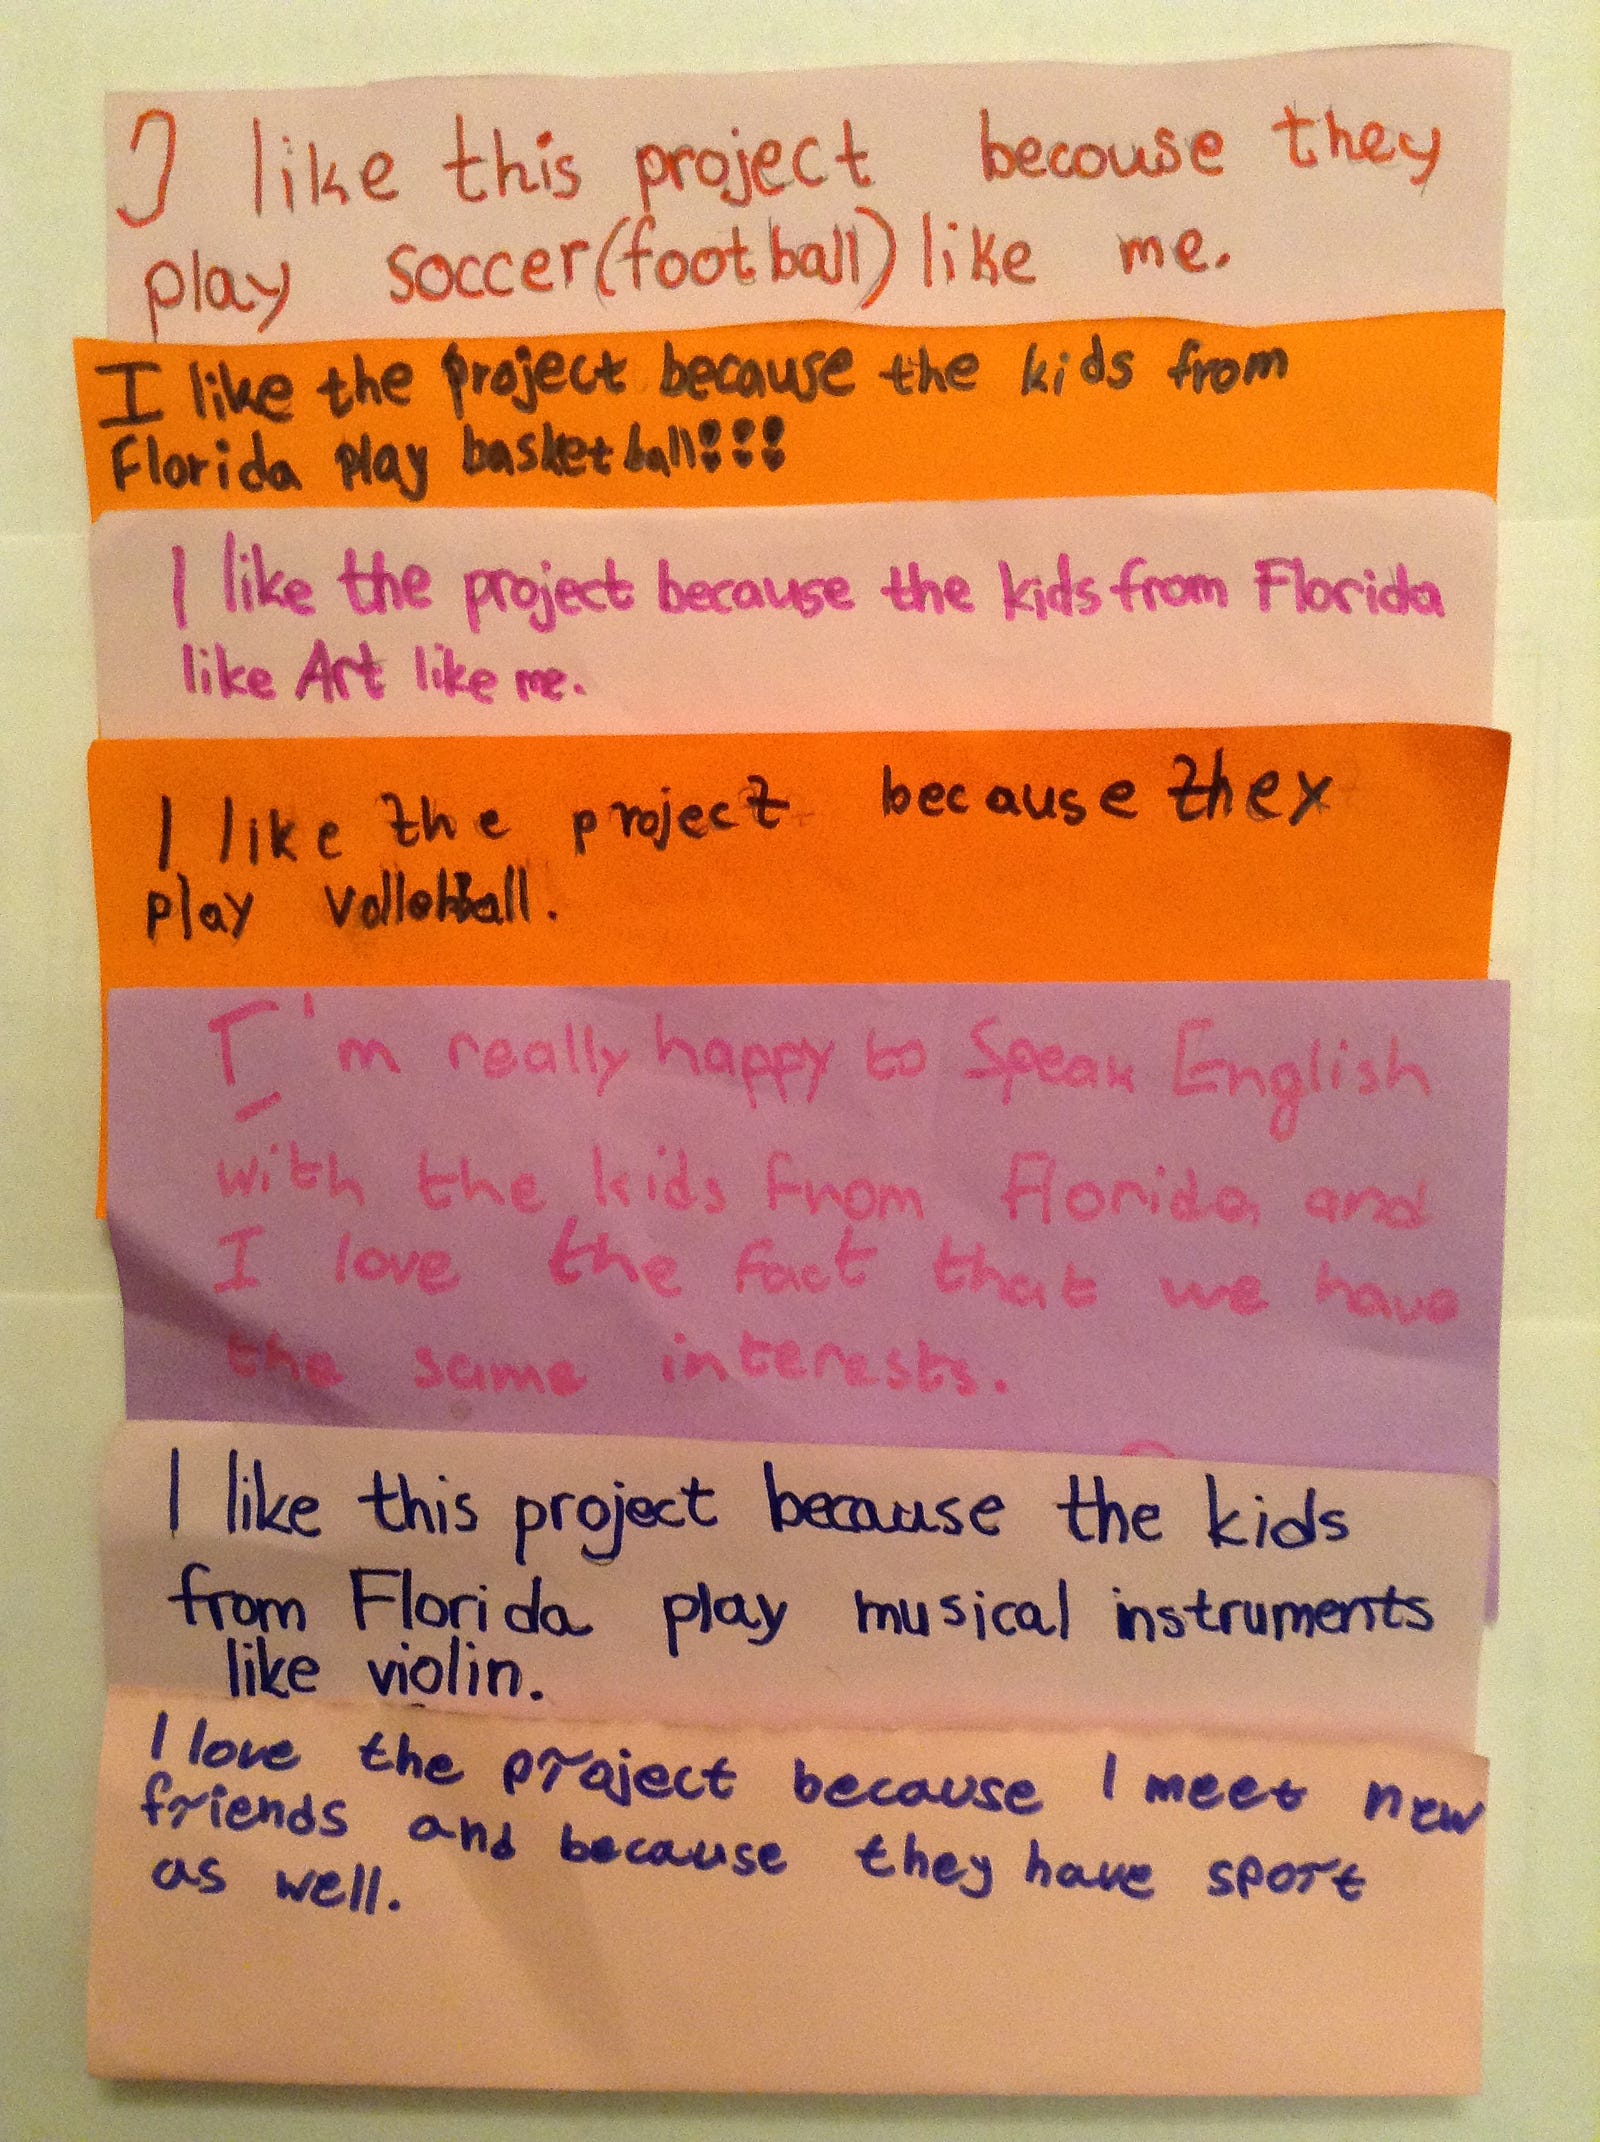 I like this project becouse they
play soccer(football) like me.
I like the project because the kids from
Florida play basketball!!!
I like the project because the kids from Florida
like Art like me.
I like the project because they
play volleball.
I'm really happy to Speak English
with the kids from Florida and
I love the fact that we have
the same interests.
I like this project because the kids
from Florida play musical instruments
like violin.
I love the project because I meet new
friends and because they have sport
as well.